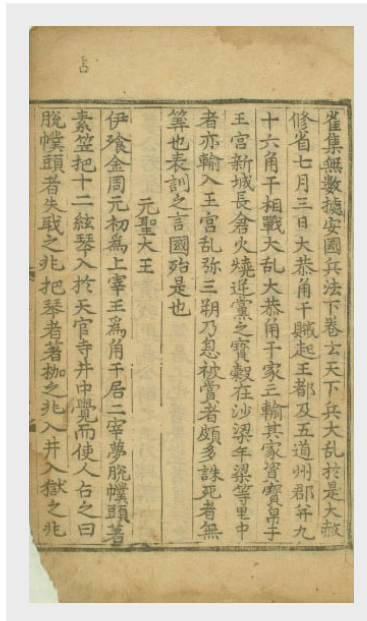 占
雀集無數據安國兵法下卷云天下兵大乱於是大赦
修省七月三日大恭角干賊起王都及五道州郡并九
十六角干相戰大乱大恭角干家亡輸其家資寶帛于
王宮新城長倉火燒逆黨之寶穀在沙梁牟梁等里中
者亦輸入王宮乱弥三朔乃息被賞者頗多誅死者無
筭也表訓之言國殆是也
元聖大王
伊飡金周元初爲上宰王爲角干居二宰夢脫幞頭著
素笠把十二絃琴入於天官寺井中覺而使人占之曰
脫幞頭者失職之兆把琴者著枷之兆入井入獄之兆